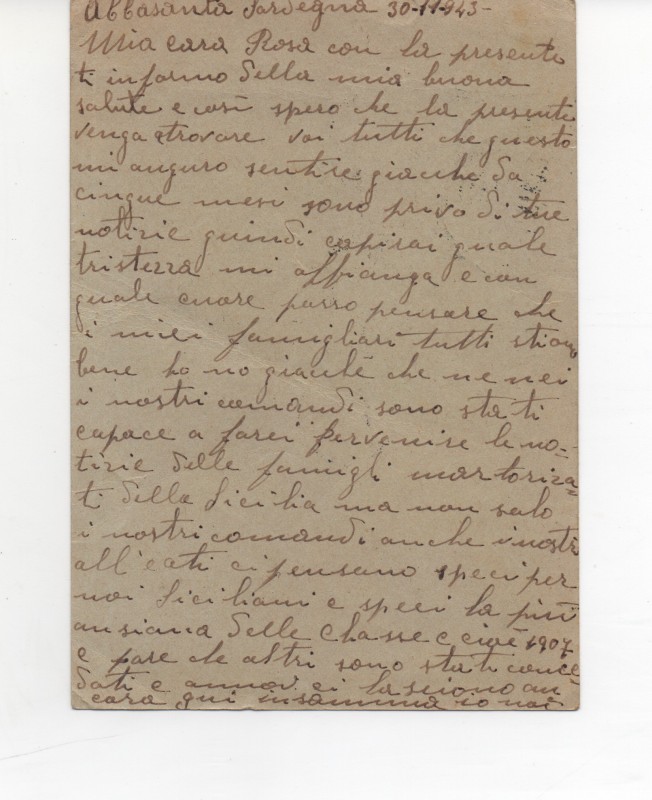 Abbasanta Sardegna 30-11-943-
Mia cara Rosa con la presente
ti informo della mia buona
salute e così spero che la presenti
venga trovare voi tutti che questo
mi auguro sentire giacche da
cinque mesi sono privo di tue
notizie quindi capirai quale
tristezza mi affianga e con
quale cuore posso pensare che
i miei famigliari tutti stiano
bene ho no giachè che ne nei
i nostri comandi sono stati
capace a farci pervenire le no-
tizie delle famigli martoriza=
ti della Sicilia ma non solo
i nostri comandi anche i nostri
alleati ci pensano speci per
noi Siciliani e speci la più
ansiana delle Chasse e cioè 1907
e pare che altri sono stati conce
dati e ci lasciono an
cora qui insamma io noi